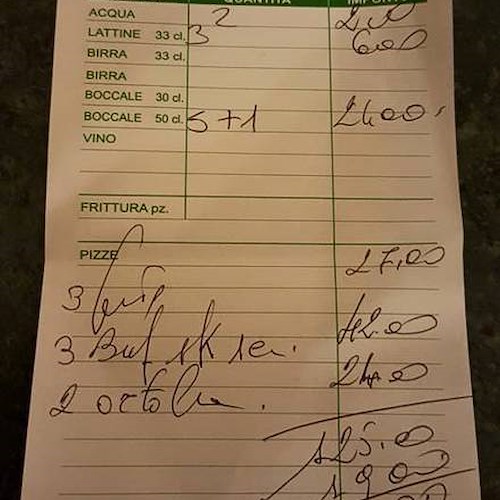 QUANTITÀ IMPORTO
ACQUA 2 2,00
LATTINE 33 cl. 3 6,00
BIRRA 33 cl.
BIRRA
BOCCALE 30 cl.
BOCCALE 50 cl. 5+1 24,00
VINO
FRITTURA pz.
PIZZE 27,00
3
3 Buf 42.00
2 24,00
125,00